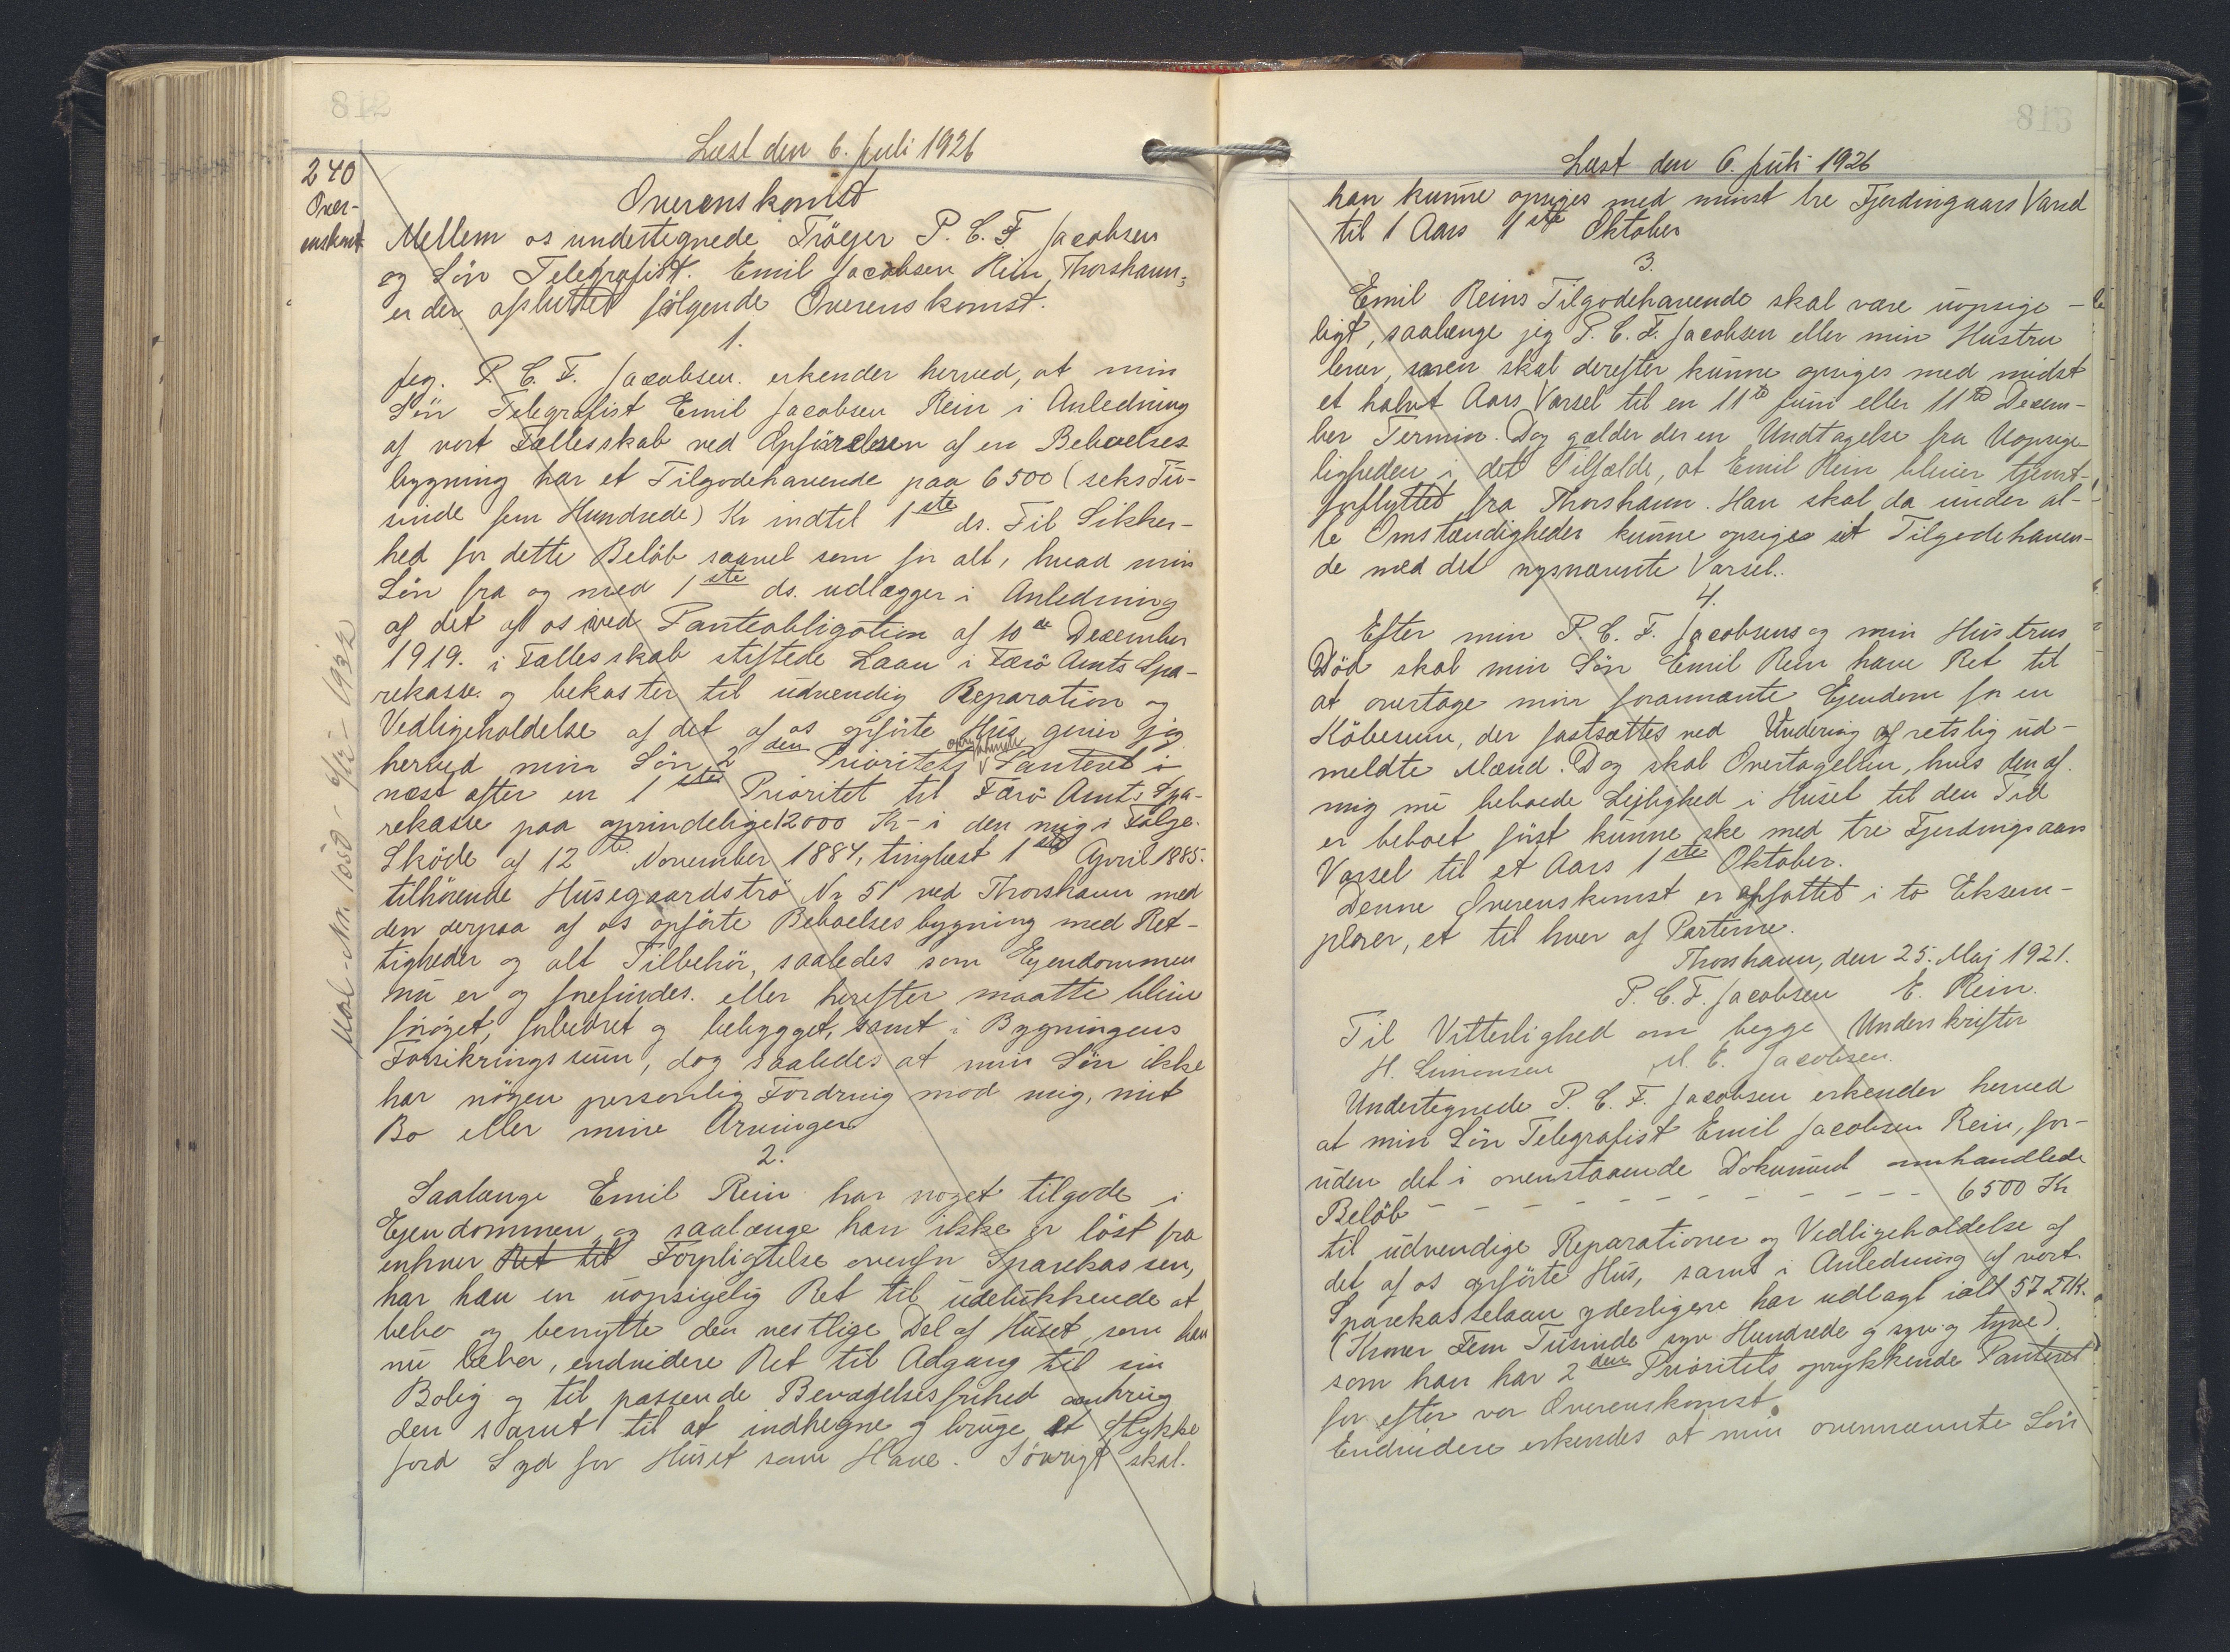 812
Læst den 6. Juli 1926
240
Over-
enskmt
Overenskomst
Mellem os undertegnede Tröejer P. C. F. Jacobsen
og Sön Telegrafist. Emil Jacobsen Rein, Thorshavn,
er der afsluttet fölgende Overenskomst.
1.
Jeg. P. C. F. Jacobsen. erkender herved, at min
Sön Telegrafist Emil Jacobsen Rein i Anledning
af vort Fællesskab ved Opförelsen af en Beboelses
bygning har et Tilgodehavende paa 6500 (seks Tu-
sinde fem Hundrede) Kr indtil 1ste ds. Til Sikker-
hed for dette Belöb saavel som for alt, hvad min
Sön fra og med 1ste ds. udlægger i Anledning
af det af os ved Panteobligation af 10de December
1919. i Fællesskab stiftede Laan i Færö Amts Spa-
rekasse og bekoster til udvendig Reparation og
Vedligeholdelse af det af os opförte Hus giver jeg
herved min Sön 2den Prioritets oprykkende Panteret i
næst efter en 1ste Prioritet til Færö Amts Spa-
rekasse paa oprindelige 12000 Kr i den mig i Fölge
Sköde af 12te November 1884, tinglæst 1ste April 1885.
tilhörende Husegaardströ Nr 51 ved Thorshavn med
den derpaa af os opförte Beboelsesbygning med Ret-
tigheder og alt Tilbehör, saaledes som Ejendommen
nu er og forefindes. eller herefter maatte blive
foröget, forbedret og bebygget, samt i Bygningens
Forsikringssum, dog saaledes at min Sön ikke
har nogen personlig Fordring mod mig, mit
Bo eller mine Arvinger
2.
Saalænge Emil Rein har noget tilgode i
Ejendommen, og saalænge han ikke er löst fra
enhver Ret til Forpligtelse overfor Sparekassen,
har han en uopsigelig Ret til udelukkende at
bebo og benytte den vestlige Del af Huset, som han
nu beboer, endvidere Ret til Adgang til sin
Bolig og til passende Bevægelsesfrihed omkring
den samt til at indhegne og bruge et Stykke
Jord Syd for Huset som Have. Iövrigt skal.
813
Læst den 6. Juli 1926
han kunne opsiges med mindst tre Fjerdingaars Varsel
til 1 Aars 1ste Oktober
3.
Emil Reins Tilgodehavende skal være uopsige-
ligt, saalænge jeg P. C. F. Jacobsen eller min Hustru
lever, men skal derefter kunne opsiges med mindst
et halvt Aars Varsel til en 11te Juni eller 11te Decem-
ber Termin. Dog gælder der en Undtagelse fra Uopsige-
ligheden i det Tilfælde, at Emil Rein bliver tjenst-
forflyttet fra Thorshavn. Han skal da under al-
le Omstændigheder kunne opsige sit Tilgodehaven-
de med det nysnævnte Varsel.
4.
Efter min P. C. F. Jacobsens og min Hustrus
Död skal min Sön Emil Rein have Ret til
at overtage min forannævnte Ejendom for en
Köbesum, der fastsættes ved Vurdering af retslig ud-
meldte Mænd. Dog skal Overtagelsen, hvis den af
mig nu beboede Lejlighed i Huset til den Tid
er beboet först kunne ske med tre Fjerdingsaars
Varsel til et Aars 1ste Oktober.
Denne Overenskomst er affattet i to Eksem-
plarer, et til hver af Parterne.
Thorshavn, den 25. Maj 1921.
P. C. F. Jacobsen E. Rein.
Til Vitterlighed om begge Underskrifter
H. Simonsen M. E. Jacobsen.
Undertegnede P. C. F. Jacobsen erkender herved
at min Sön Telegrafist Emil Jacobsen Rein, for-
uden det i ovenstaaende Dokument omhandlede
Belöb - - - - - - - - - - - 6500 Kr
til udvendige Reparationer og Vedligeholdelse af
det af os opförte Hus, samt i Anledning af vort
Sparekasselaan yderligere har udlagt ialt 5727 Kr.
(Kroner Fem Tusinde syv Hundrede og syv og tyve).
som han har 2den Prioritets oprykkende Panteret
for efter vor Overenskomst.
Endvidere erkendes at min ovennævnte Sön